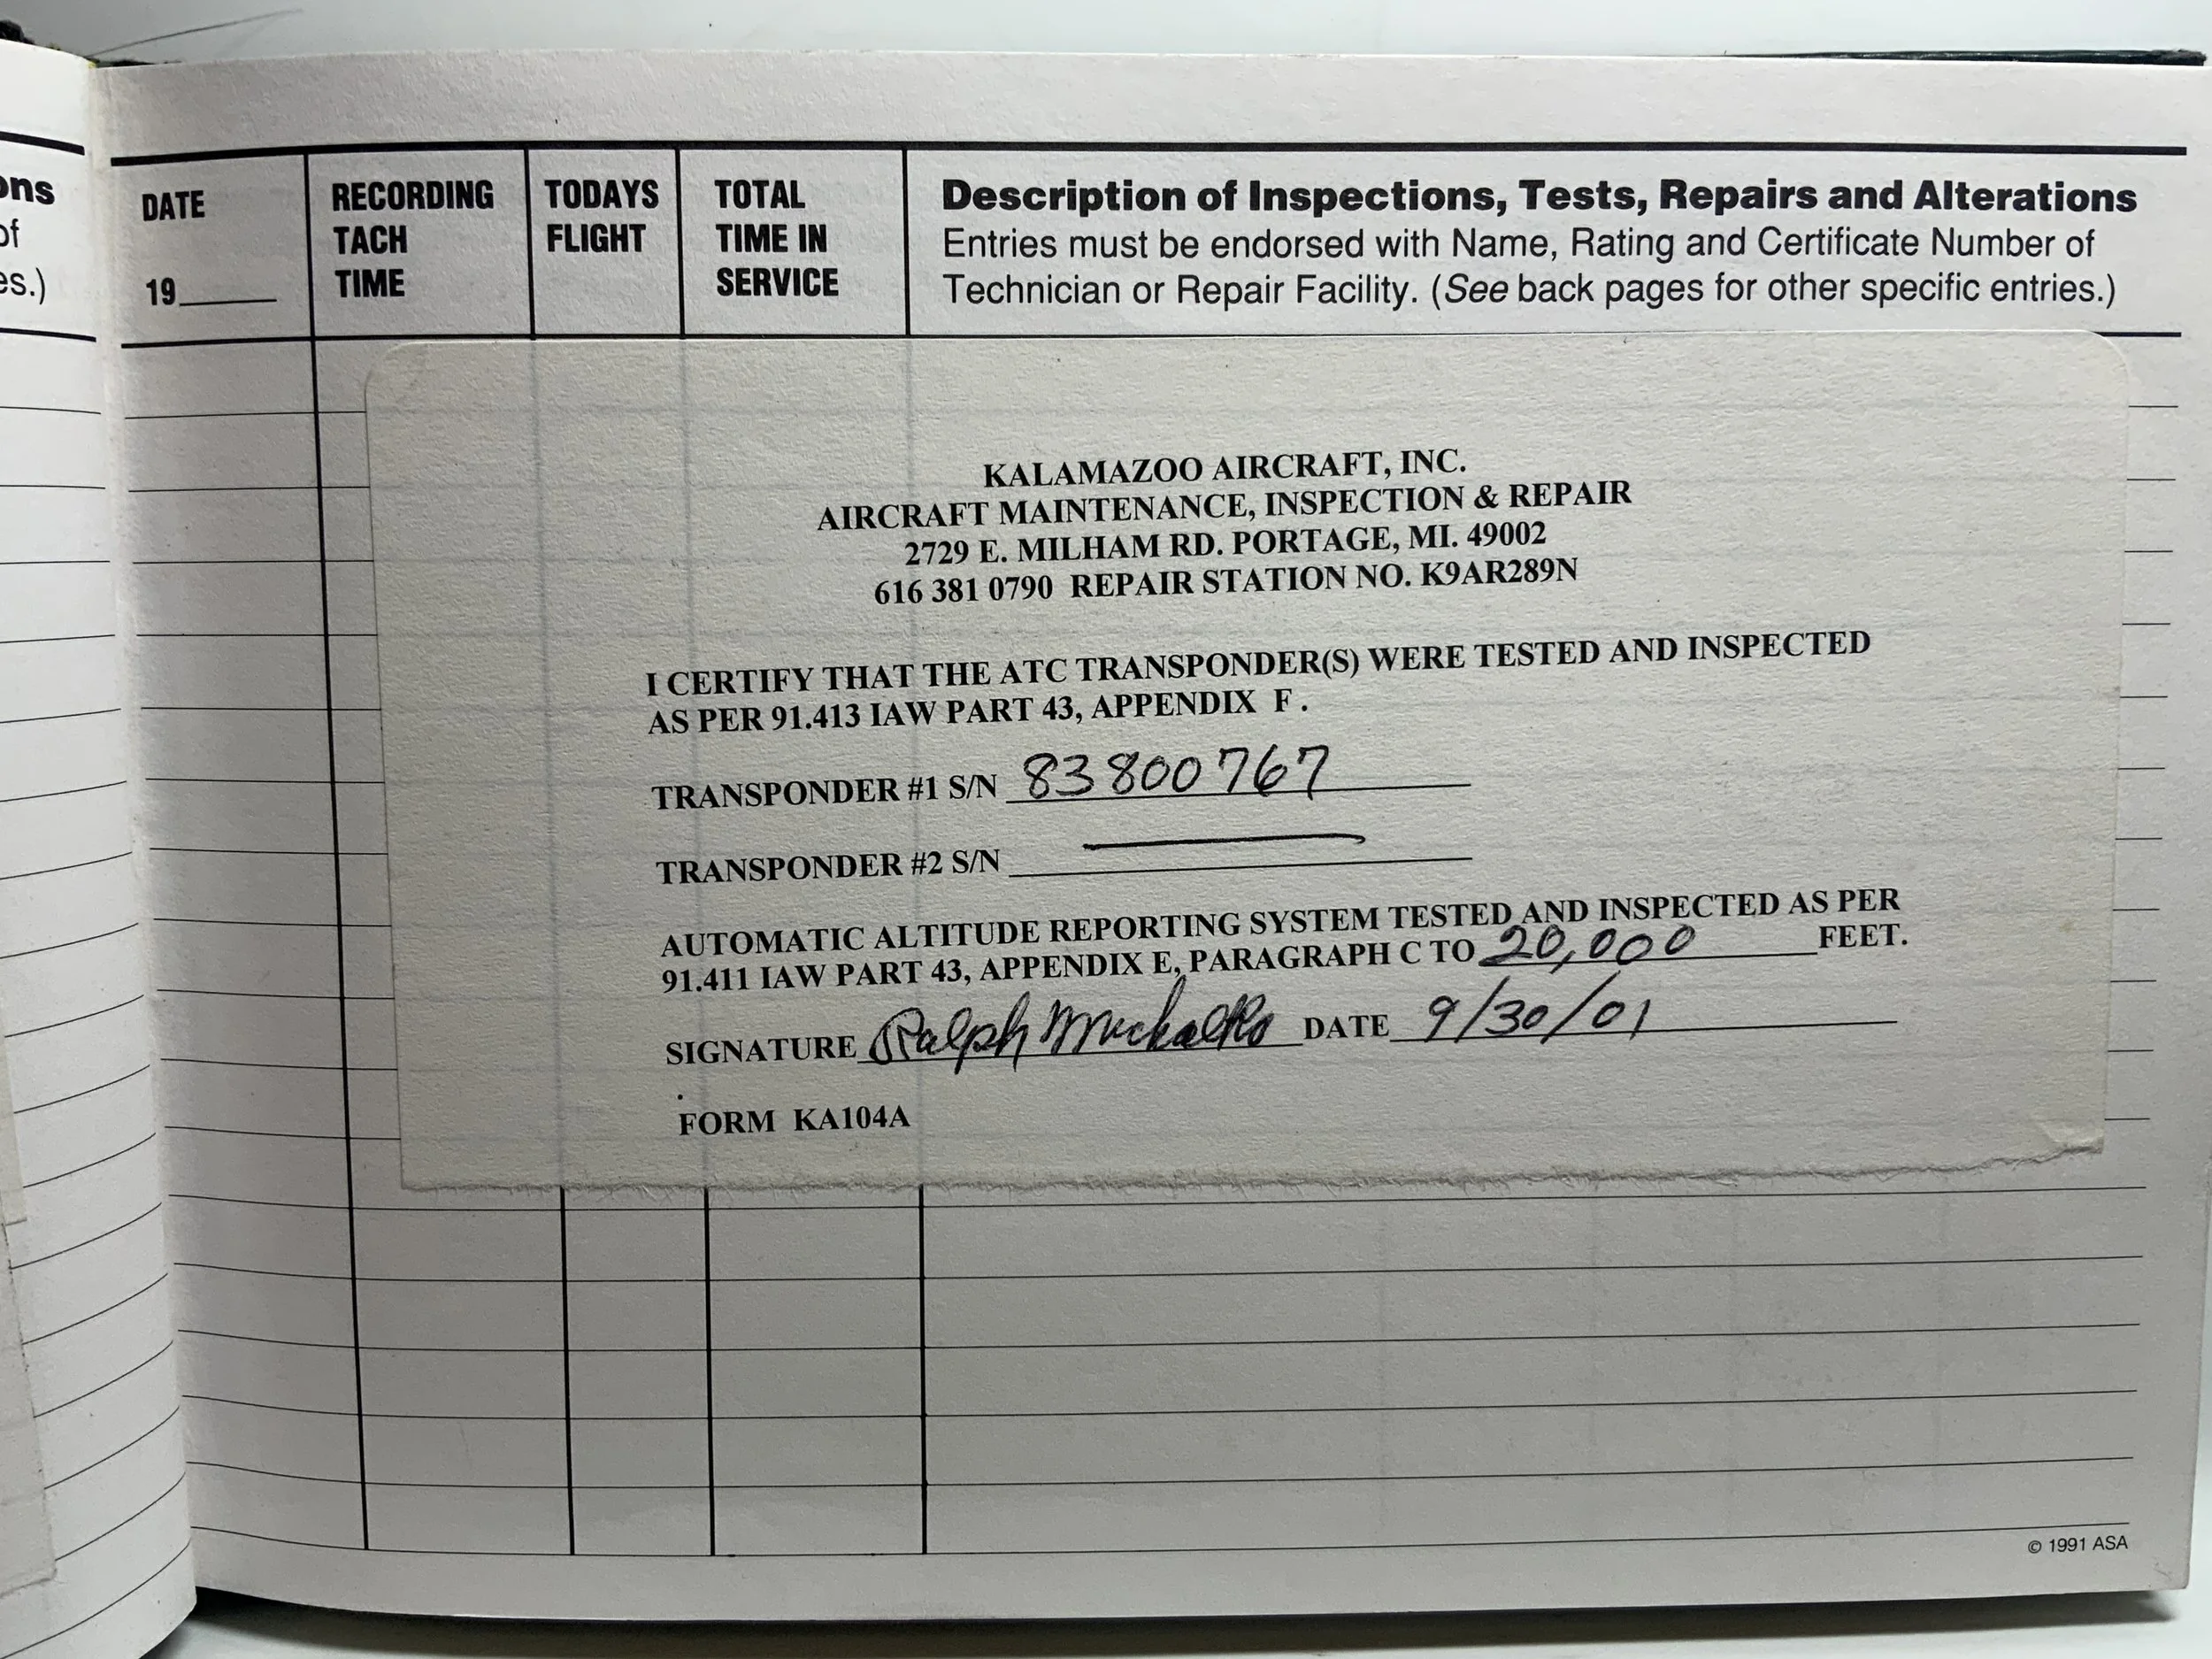 ons
of
es.)
DATE
19____
RECORDING
TACH
TIME
TODAYS
FLIGHT
TOTAL
TIME IN
SERVICE
Description of Inspections, Tests, Repairs and Alterations
Entries must be endorsed with Name, Rating and Certificate Number of
Technician or Repair Facility. (See back pages for other specific entries.)
KALAMAZOO AIRCRAFT, INC.
AIRCRAFT MAINTENANCE, INSPECTION & REPAIR
2729 E. MILHAM RD. PORTAGE, MI. 49002
616 381 0790 REPAIR STATION NO. K9AR289N
I CERTIFY THAT THE ATC TRANSPONDER(S) WERE TESTED AND INSPECTED
AS PER 91.413 IAW PART 43, APPENDIX F.
TRANSPONDER #1 S/N 83800767
TRANSPONDER #2 S/N
AUTOMATIC ALTITUDE REPORTING SYSTEM TESTED AND INSPECTED AS PER
91.411 IAW PART 43, APPENDIX E, PARAGRAPH C TO 20,000 FEET.
SIGNATURE Ralph DATE 9/30/01
FORM KA104A
© 1991 ASA